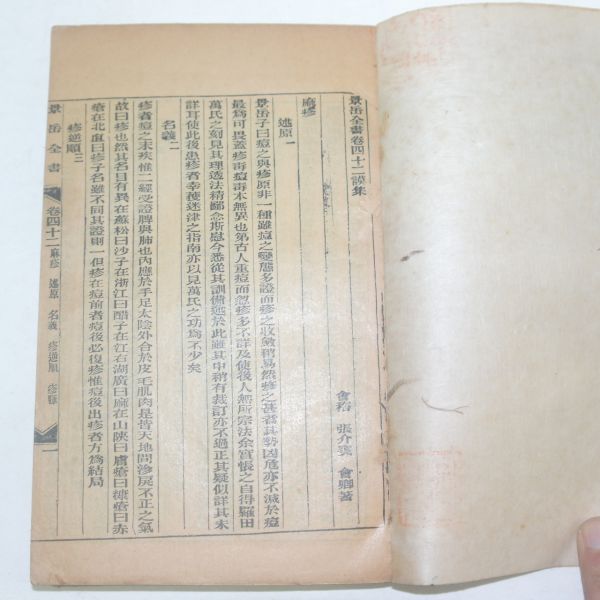 景岳全書卷四十二謨集
會稽 張介賓 會卿著
麻疹
述原一
景岳子曰痘之與疹原非一種雖痘之變態多證而疹之收斂稍易然疹之甚者其勢凶危亦不減於痘
最為可畏蓋疹毒痘毒本無異也第古人重痘而忽疹多不詳及使後人無所宗法余實悵之自得羅田
萬氏之刻見其理透法精鄙念斯慰今悉從其訓備述於此雖其中稍有裁訂亦不過正其疑似詳其未
詳耳使此後患疹者幸獲迷津之指南亦以見萬氏之功為不少矣
名義二
疹者痘之末疾惟二經受證脾與肺也內應於手足太陰外合於皮毛肌肉是皆天地間沴戾不正之氣
故曰疹也然其名目有異在蘇松曰沙子在浙江曰醋子在江右湖廣曰麻在山陝曰膚瘡曰糠瘡曰赤
瘡在北直曰疹子名雖不同其證則一但疹在痘前者痘後必復疹惟痘後出疹者方為結局
疹逆順三
景岳全書 卷四十二 麻疹 述原 名義 疹逆順 疹脈 一